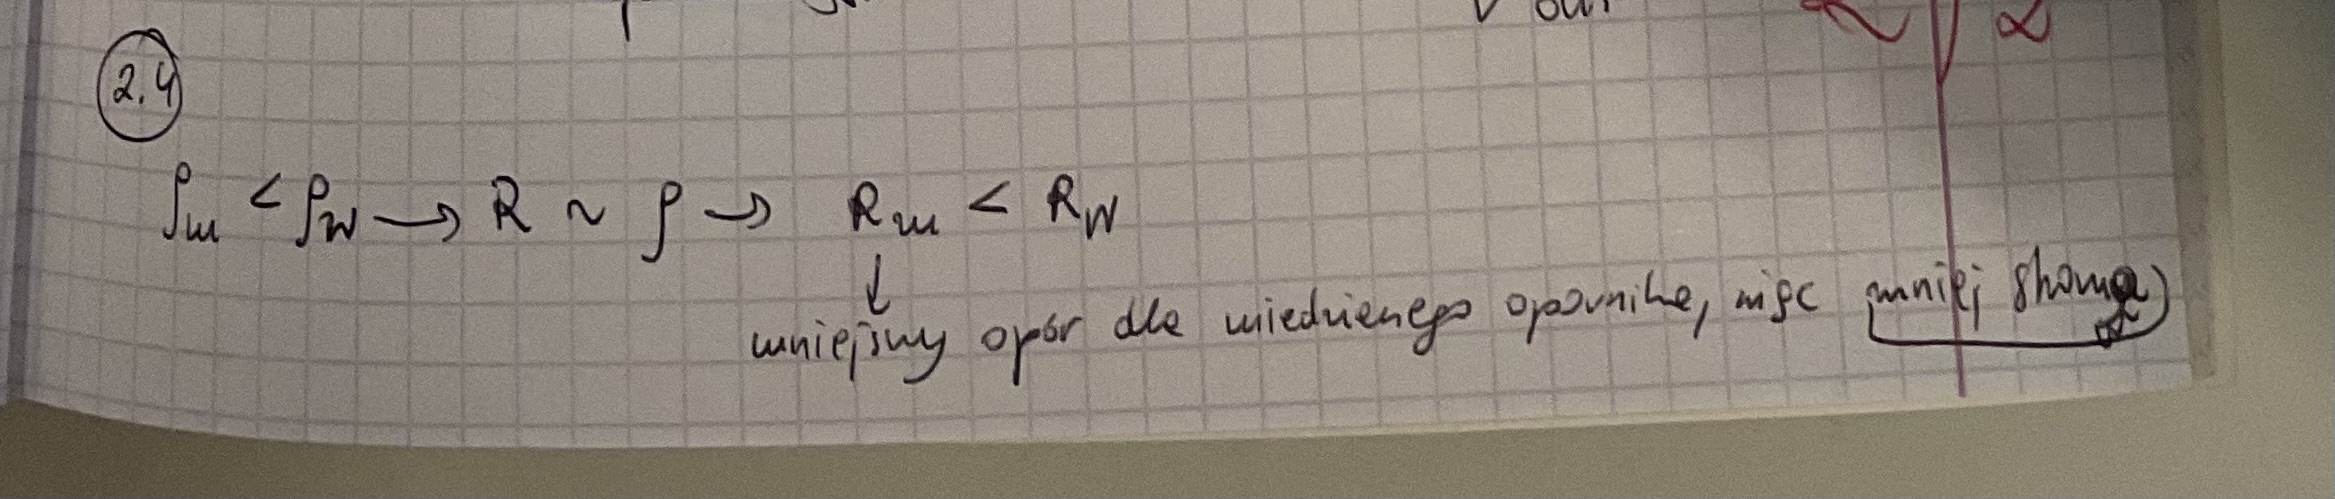 2.4
ρm < ρw → R ~ ρ → Rm < Rw
↓
mniejszy opór dla miedzienego opornika, więc mniej stroma